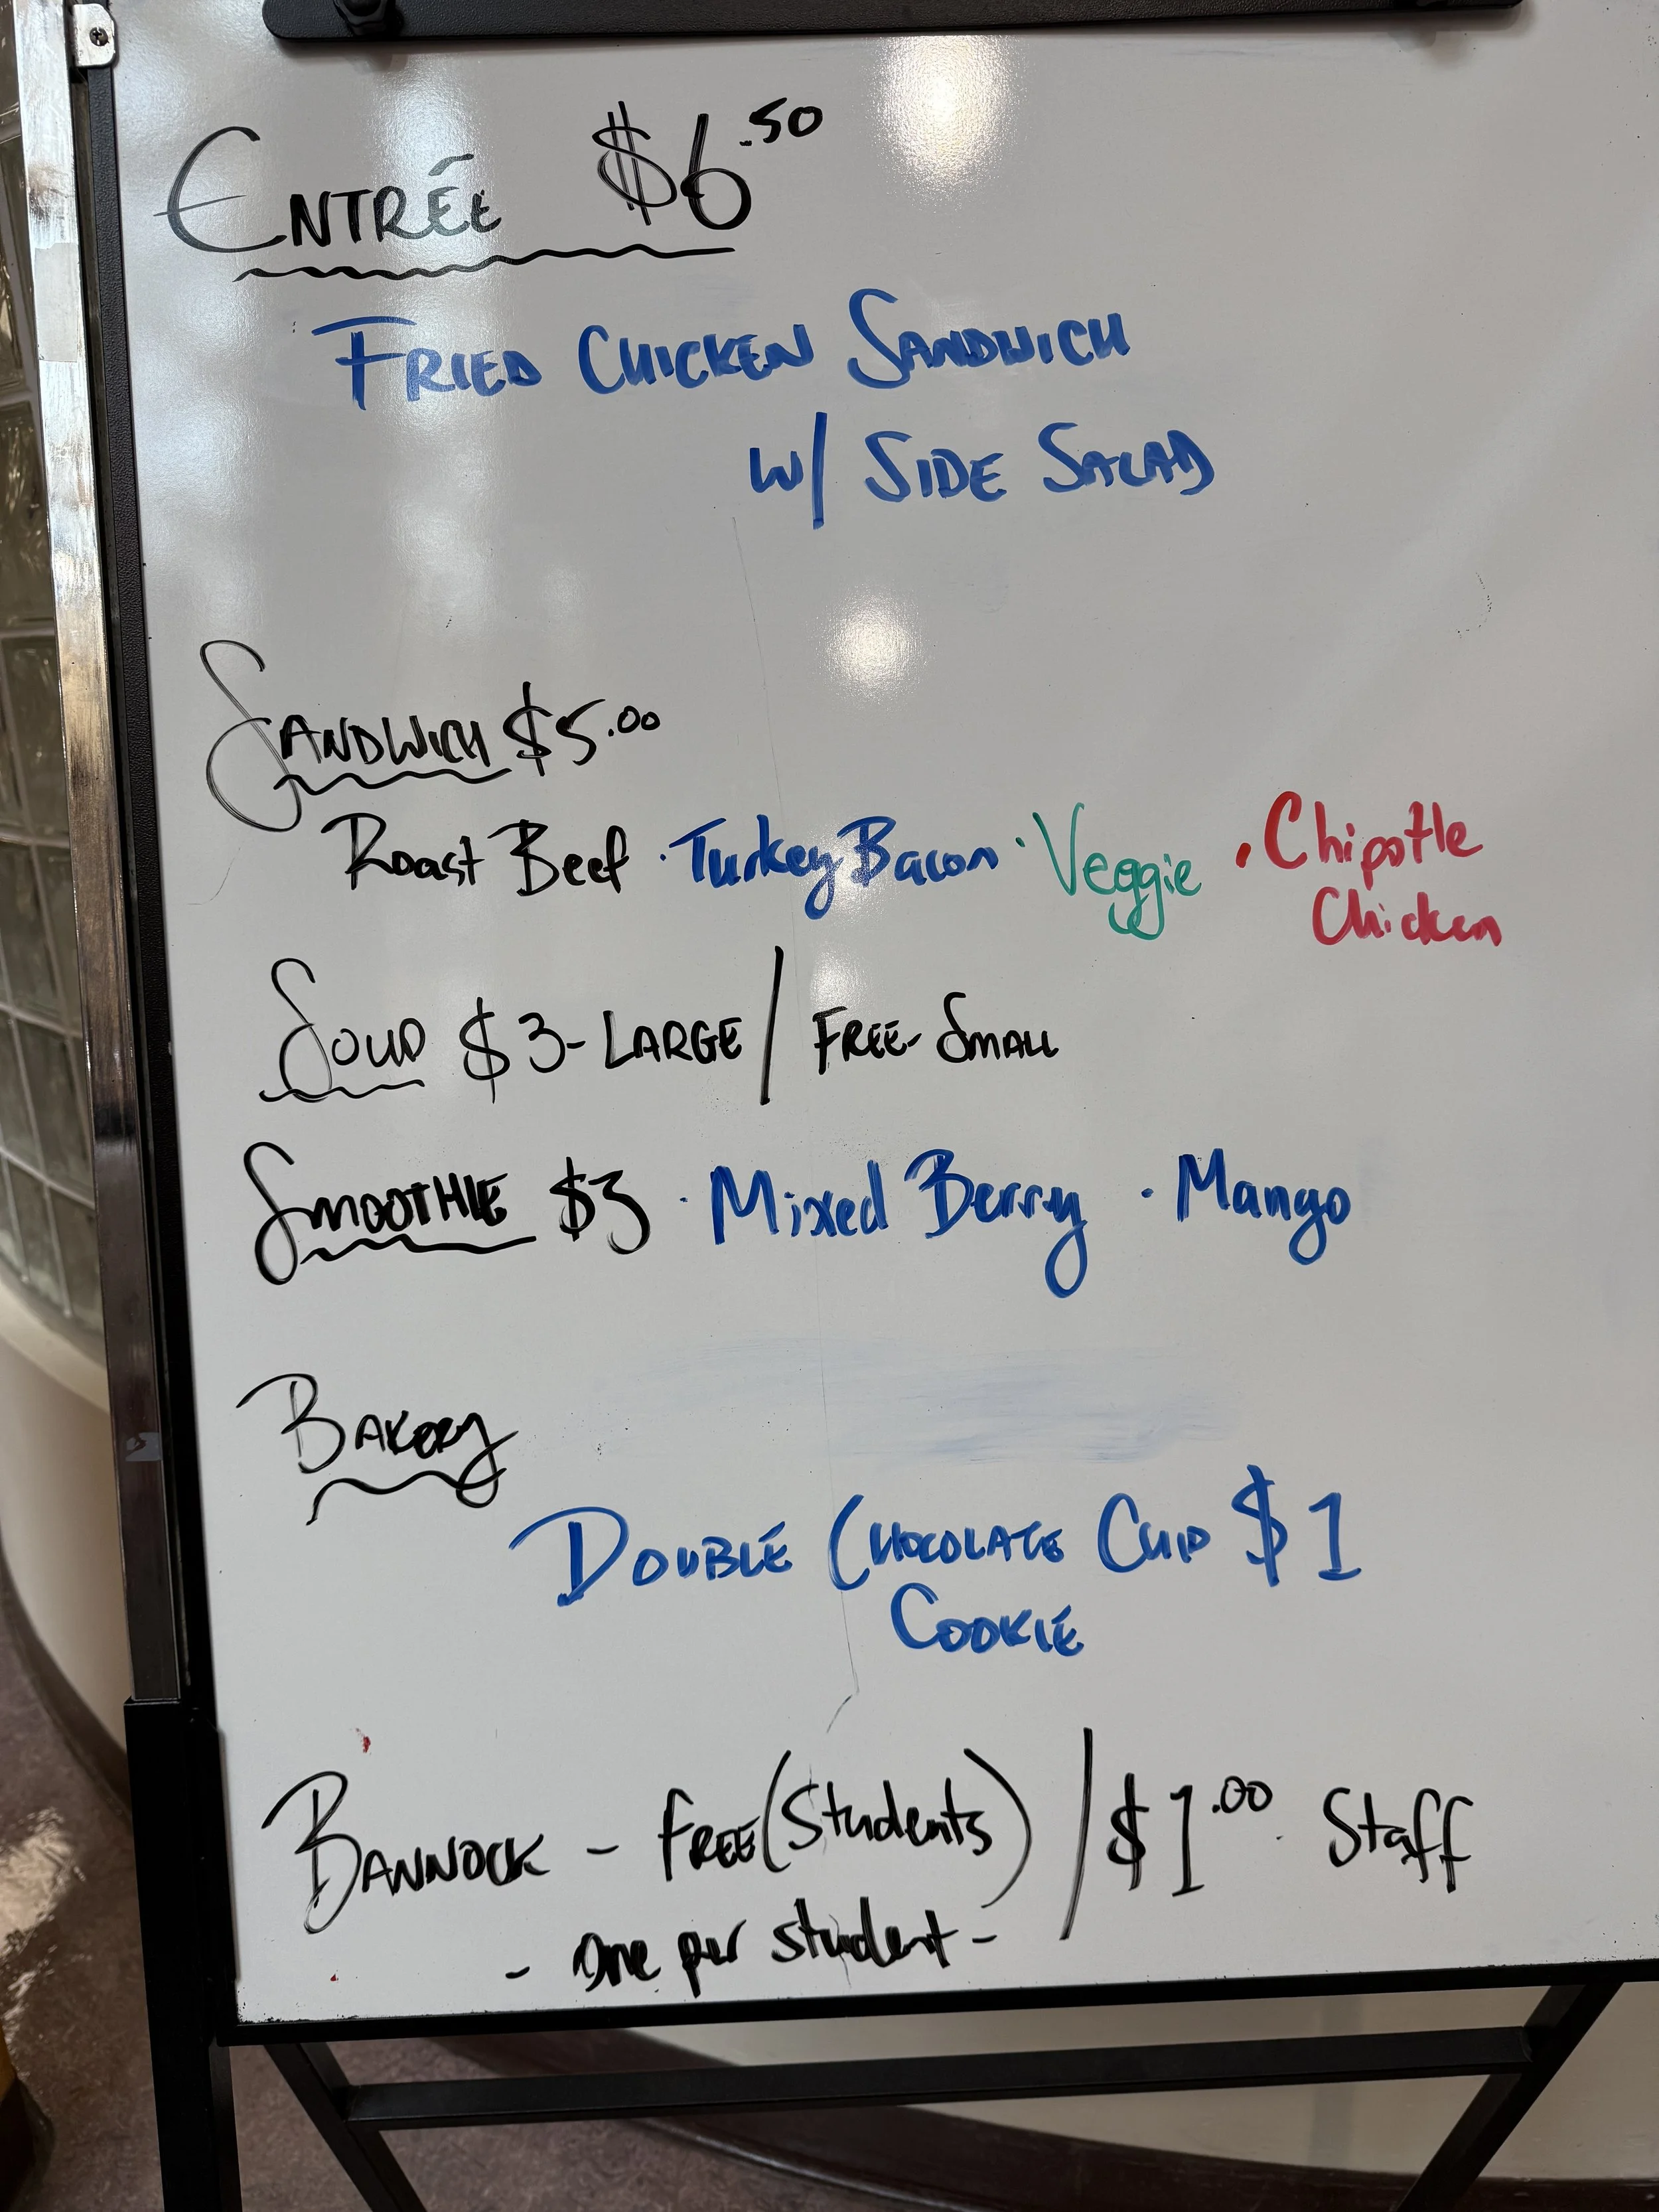 ENTRÉE $6.50
FRIED CHICKEN SANDWICH
W/ SIDE SALAD
SANDWICH $5.00
Roast Beef · Turkey Bacon · Veggie · Chipotle
Chicken
SOUP $3 - LARGE / FREE - SMALL
SMOOTHIE $3 · Mixed Berry · Mango
BAKERY
DOUBLE CHOCOLATE CHIP $1
COOKIE
BANNOCK - FREE (Students) / $1.00 Staff
- one per student -